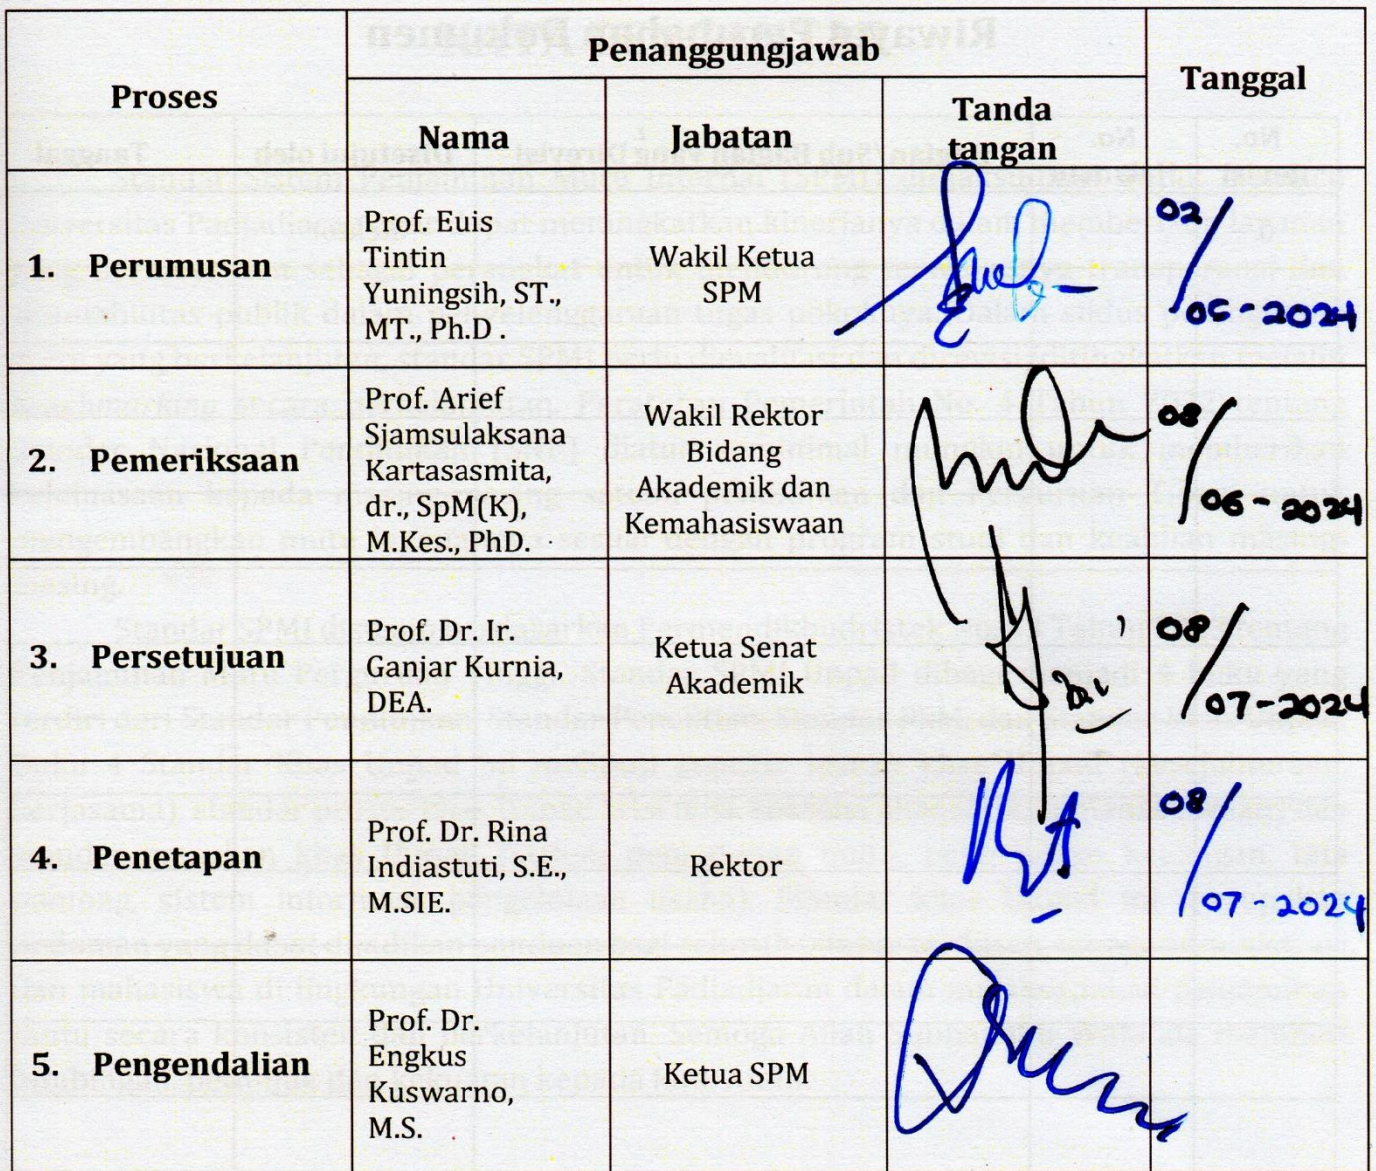 Penanggungjawab
Proses
Tanggal
Nama
Jabatan
Tanda
tangan
1. Perumusan
Prof. Euis
Tintin
Yuningsih, ST.,
MT., Ph.D .
Wakil Ketua
SPM
02/
05-2024
2. Pemeriksaan
Prof. Arief
Sjamsulaksana
Kartasasmita,
dr., SpM(K),
M.Kes., PhD.
Wakil Rektor
Bidang
Akademik dan
Kemahasiswaan
08/
06-2024
3. Persetujuan
Prof. Dr. Ir.
Ganjar Kurnia,
DEA.
Ketua Senat
Akademik
08/
07-2024
4. Penetapan
Prof. Dr. Rina
Indiastuti, S.E.,
M.SIE.
Rektor
08/
07-2024
5. Pengendalian
Prof. Dr.
Engkus
Kuswarno,
M.S.
Ketua SPM